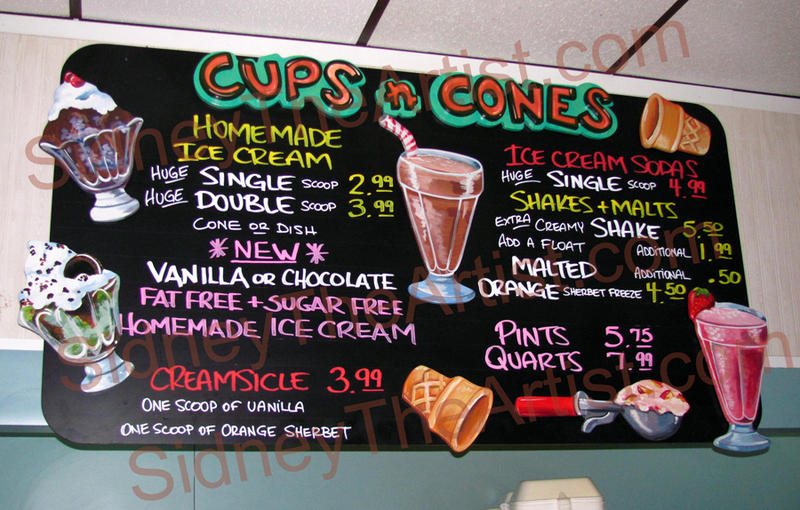 CUPS n CONES
HOMEMADE
ICE CREAM
HUGE SINGLE SCOOP 2.99
HUGE DOUBLE SCOOP 3.99
CONE OR DISH
*NEW*
VANILLA OR CHOCOLATE
FAT FREE + SUGAR FREE
HOMEMADE ICE CREAM
CREAMSICLE 3.99
ONE SCOOP OF VANILLA
ONE SCOOP OF ORANGE SHERBET
ICE CREAM SODAS
HUGE SINGLE SCOOP 4.99
SHAKES + MALTS
EXTRA CREAMY SHAKE 5.50
ADD A FLOAT ADDITIONAL 1.99
MALTED ADDITIONAL .50
ORANGE SHERBET FREEZE 4.50
PINTS 5.75
QUARTS 7.99
SidneyTheArtist.com
SidneyTheArtist.com
SidneyTheArtist.com
SidneyTheArtist.com